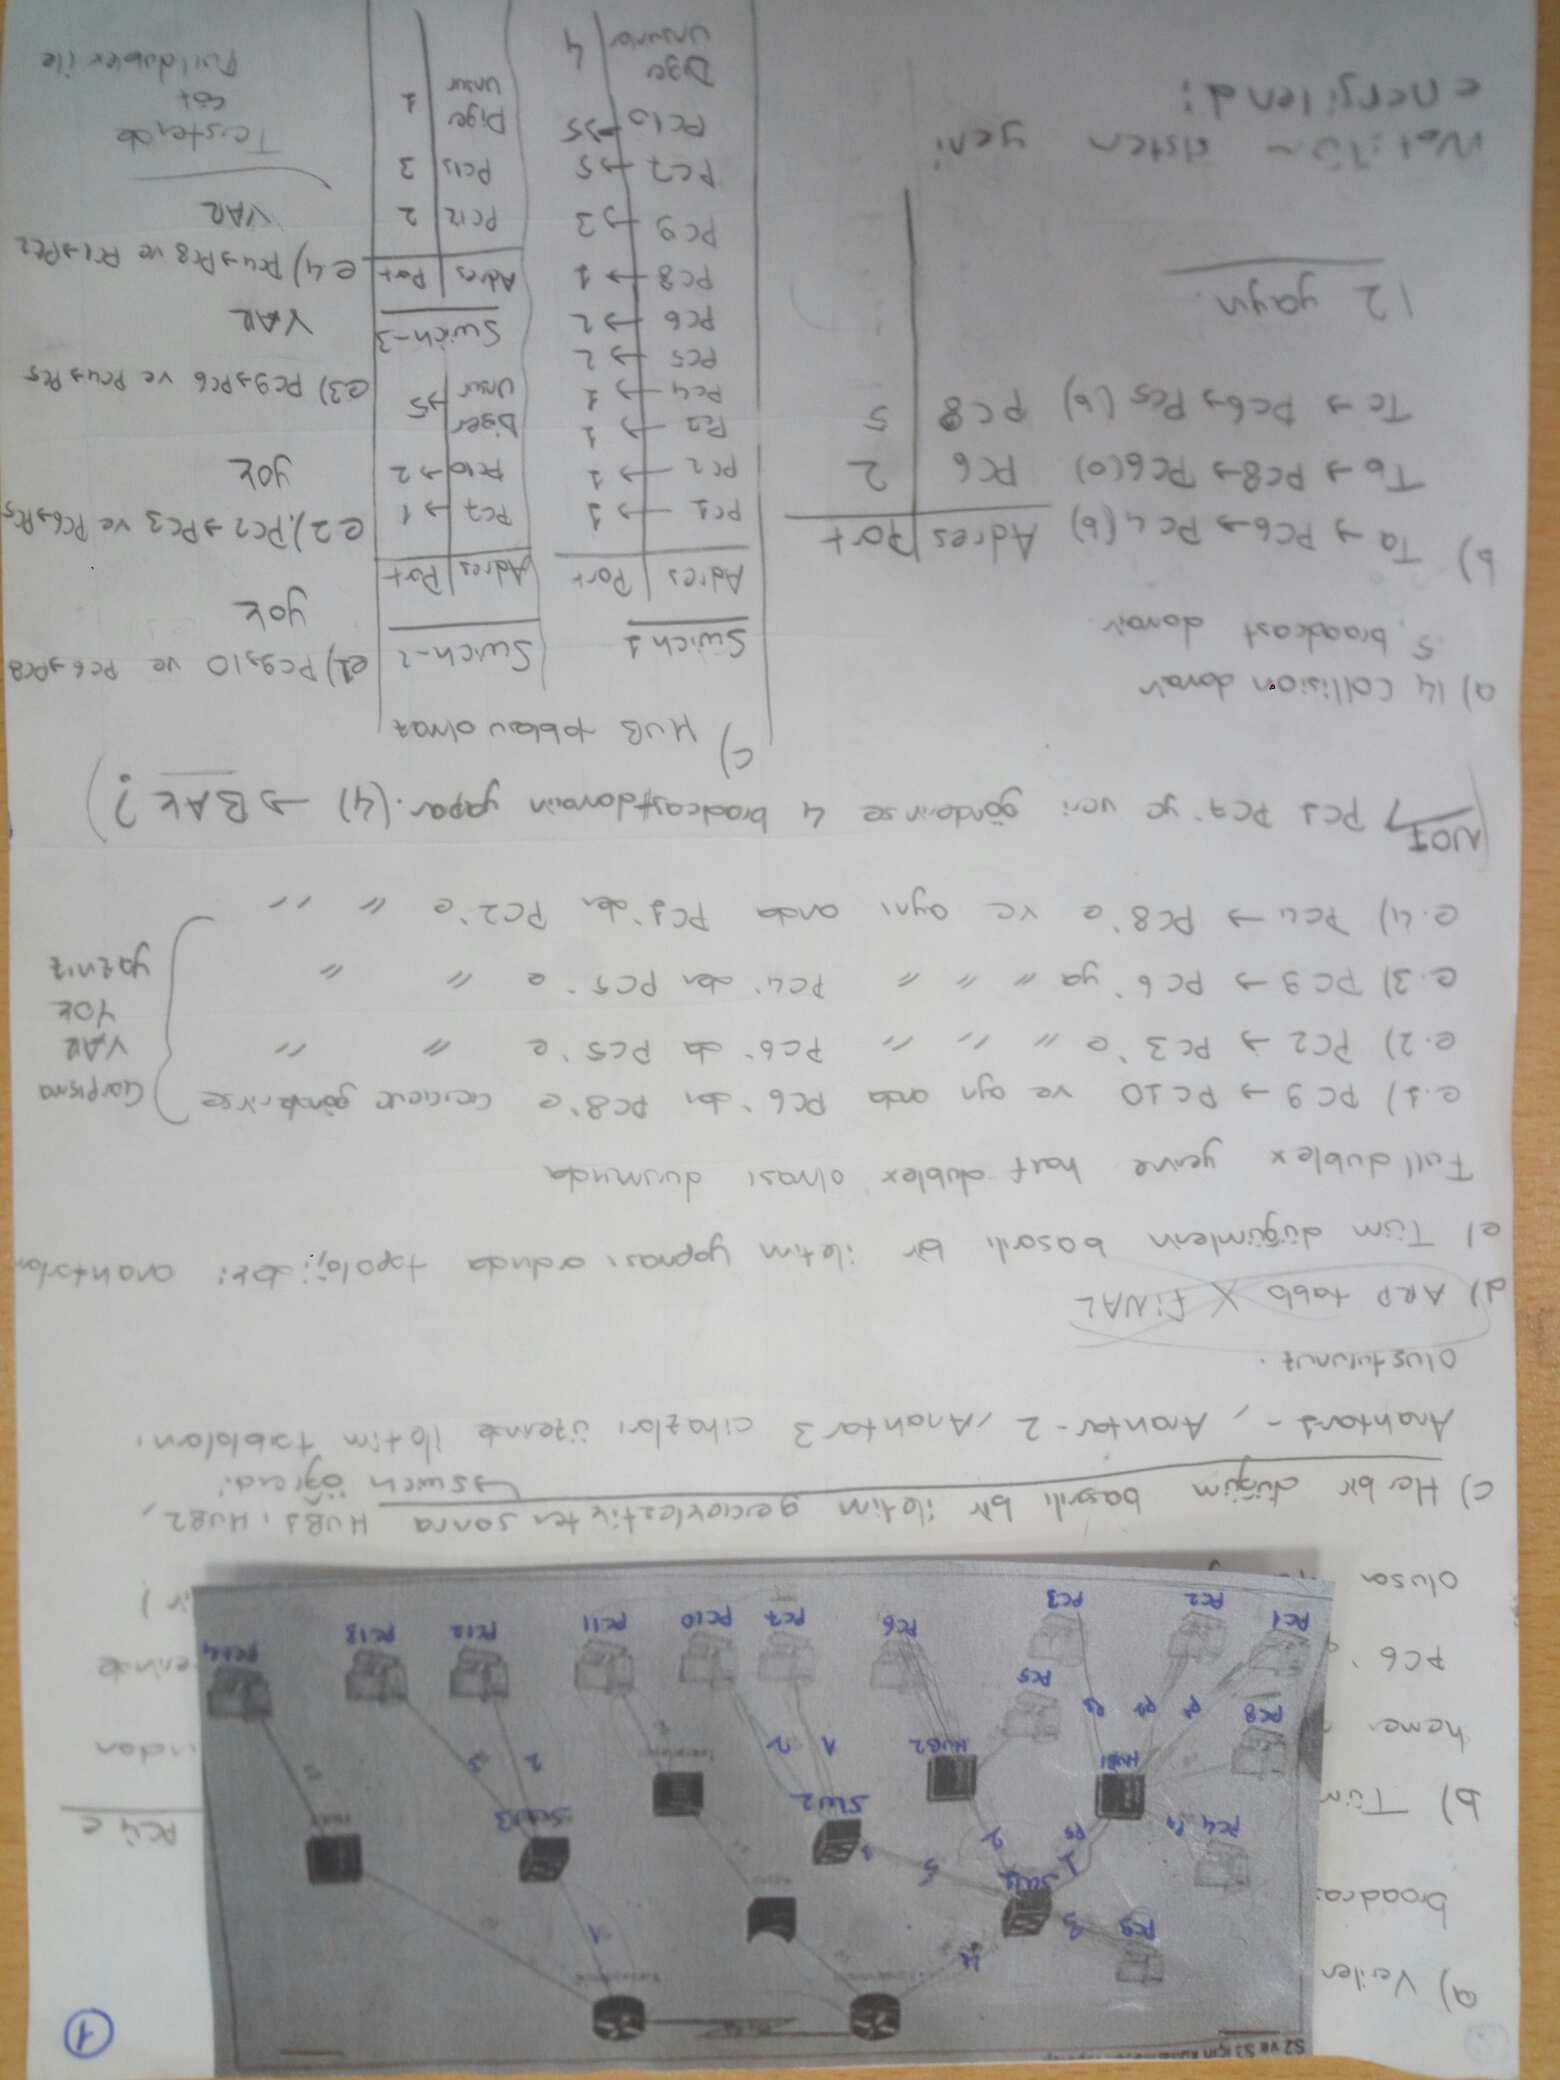 1
S2 ve S3 için
PC9
3
4
SW1
1
P5
2
5
PC4
P4
HUB1
HUB2
SW2
1
SW3
1
2
3
PC8
PC5
1
2
PC1
PC2
PC3
PC6
PC7
PC10
PC11
PC12
PC13
PC14
a) Verilen
broadcas
b) Tüm
PC4 e
hemen
ından
PC6'
erinde
oluşan
ir)
c) Her bir düğüm başarılı bir iletim gerçekleştikten sonra HUB1, HUB2,
→ swich öğrendi
Anahtar1-, Anahtar-2, Anahtar3 cihazları üzerinde iletim tablolarını
oluşturunuz.
d) ARP tablo X FİNAL
e) Tüm düğümlerin başarılı bir iletim yapması ardında topolojideki anahtarların
Full dublex yerine half dublex olması durumunda
e.1) PC9 → PC10 ve aynı anda PC6'dan PC8'e gönderirse
e.2) PC2 → PC3'e " " " PC6'da PC5'e " "
e.3) PC9 → PC6'ya " " " PC4'den PC5'e " "
e.4) PC4 → PC8'e ve aynı anda PC1'den PC2'e " "
Çarpışma
VAR
YOK
yazınız
NOT → PC1 PC9'ye veri gönderirse 4 broadcast domain yapar. (4) → BAK?
a) 14 Collision domain
5 broadcast domain
b) Ta → PC6 → PC4 (b)
Tb → PC8 → PC6 (0)
Tc → PC6 → PC5 (b)
Adres Port
PC6 2
PC8 5
12 yayın.
Not: Tüm sistem yeni
energilendi
c) HUB tablosu olmaz
Swich 1
Adres Port
PC1 → 1
PC2 → 1
PC3 → 1
PC4 → 1
PC5 → 2
PC6 → 2
PC8 → 1
PC9 → 3
PC7 → 5
PC10 → 5
Diğer
unsurlar 4
Swich-2
Adres Port
PC7 → 1
PC10 → 2
Diğer
Unsur → 5
Swich-3
Adres Port
PC12 2
PC13 3
Diğer
unsur 1
e1) PC9→10 ve PC6→PC8
yok
e2) PC2→PC3 ve PC6→PC5
yok
e3) PC9→PC6 ve PC4→PC5
VAR
e4) PC4→PC8 ve PC1→PC2
VAR
Tarstende
çöz
Fulldublex ile